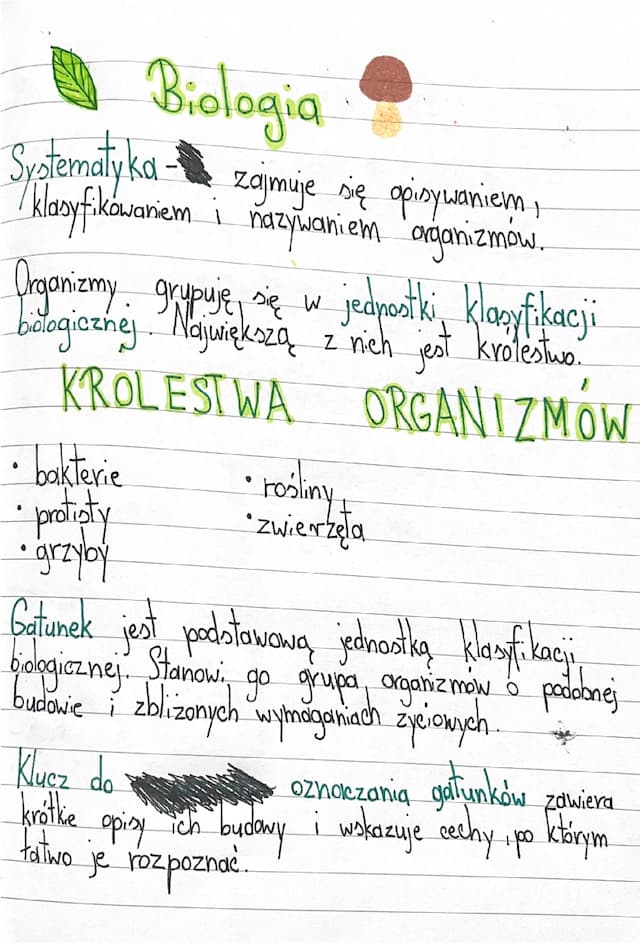 Biologia
Systematyka - zajmuje się opisywaniem,
klasyfikowaniem i nazywaniem organizmów.
Organizmy grupuję się w jednostki klasyfikacji
biologicznej. Największą z nich jest królestwo.
KROLESTWA ORGANIZMÓW
• bakterie
• protisty
• grzyby
• rośliny
• zwierzęta
Gatunek jest podstawową jednostką klasyfikacji
biologicznej. Stanowi go grupa organizmów o podobnej
budowie i zbliżonych wymaganiach życiowych.
Klucz do oznaczania gatunków zawiera
krótkie opisy ich budowy i wskazuje cechy, po którym
łatwo je rozpoznać.